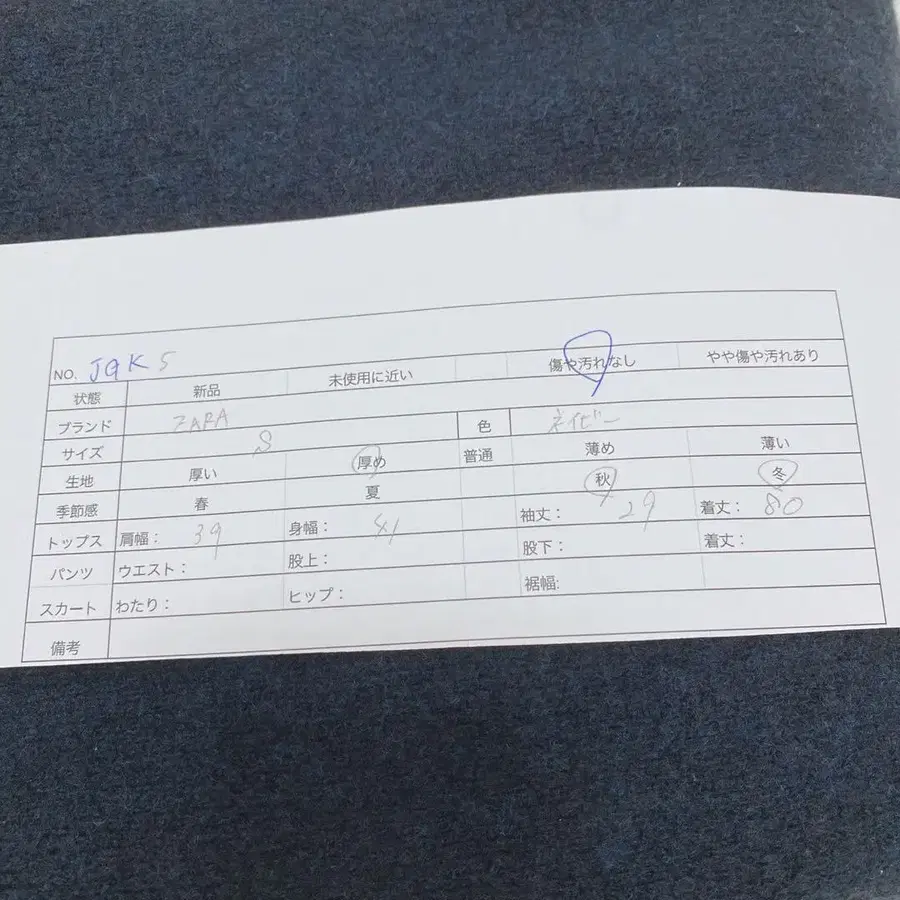 NO. JGK5
状態 新品 未使用に近い 傷や汚れなし やや傷や汚れあり
ブランド ZARA 色 ネイビー
サイズ S
生地 厚い 厚め 普通 薄め 薄い
季節感 春 夏 秋 冬
トップス 肩幅: 39 身幅: 41 袖丈: 29 着丈: 80
パンツ ウエスト: 股上: 股下: 着丈:
スカート わたり: ヒップ: 裾幅:
備考